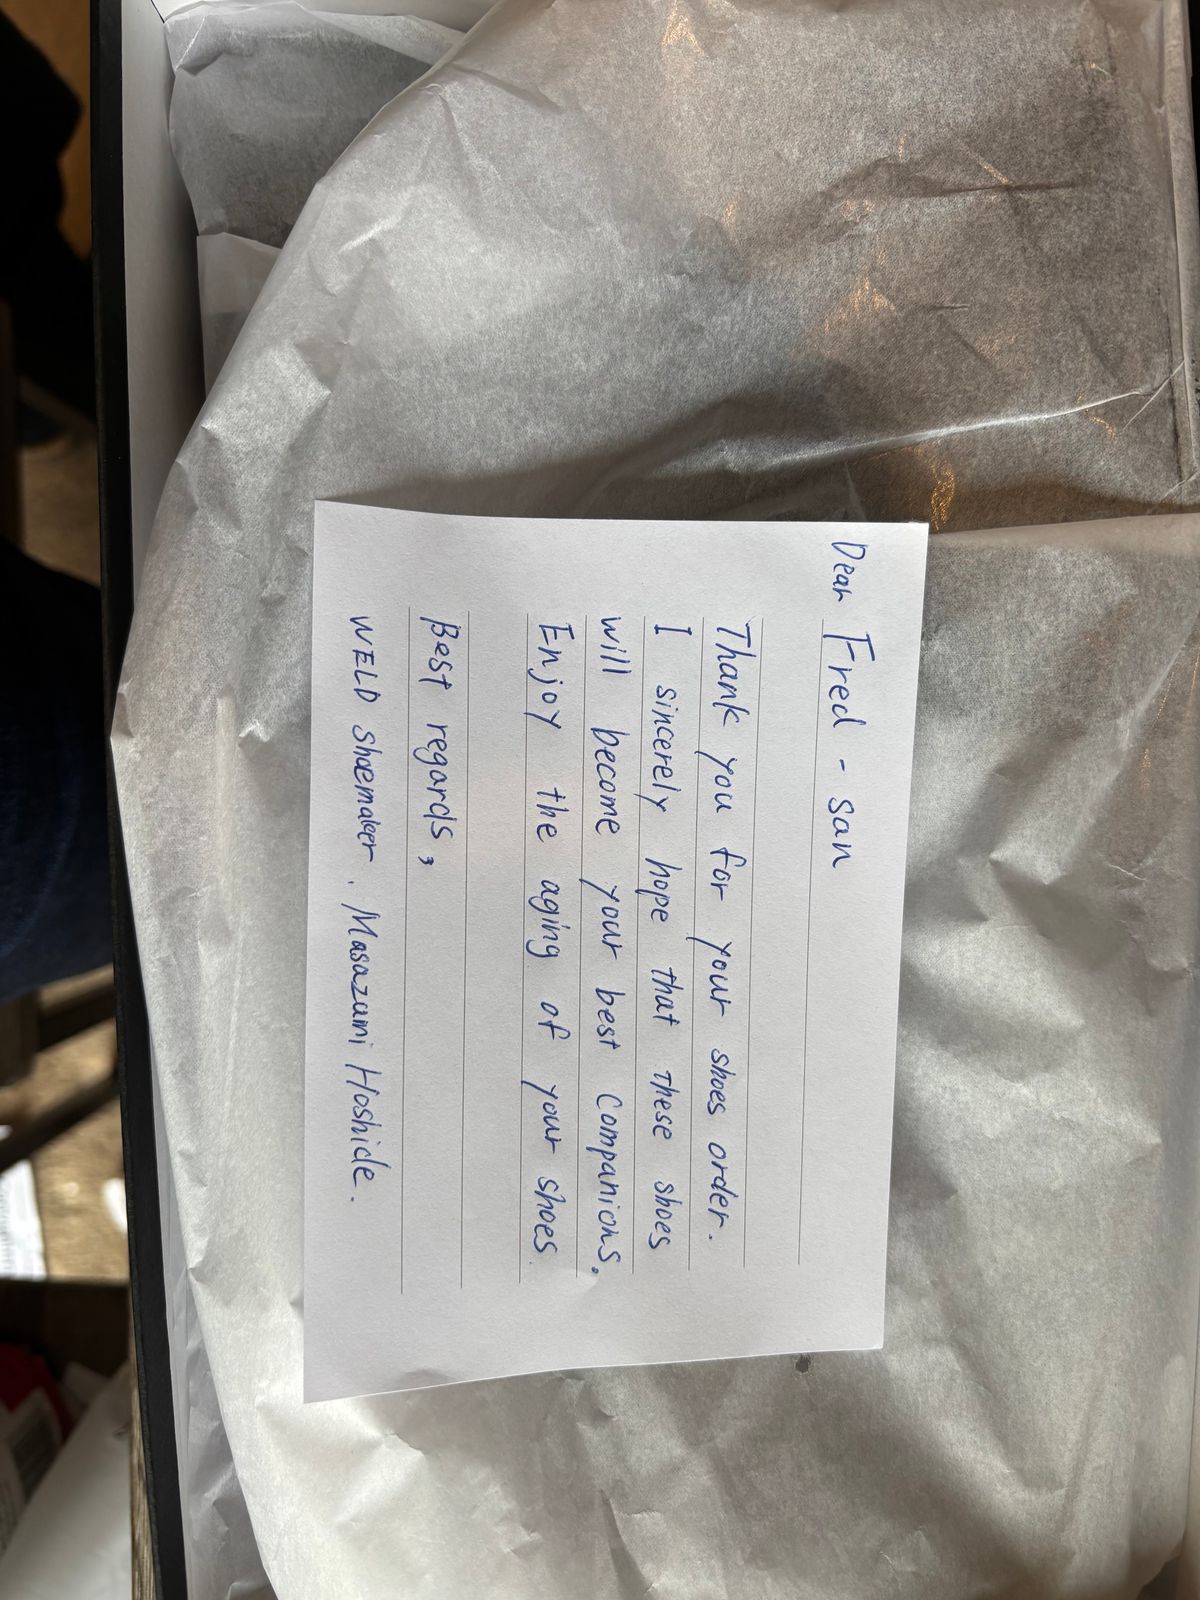 Dear Fred - san
Thank you for your shoes order.
I sincerely hope that these shoes
will become your best companions.
Enjoy the aging of your shoes.
Best regards,
WELD shoemaker. Masazumi Hoshide.